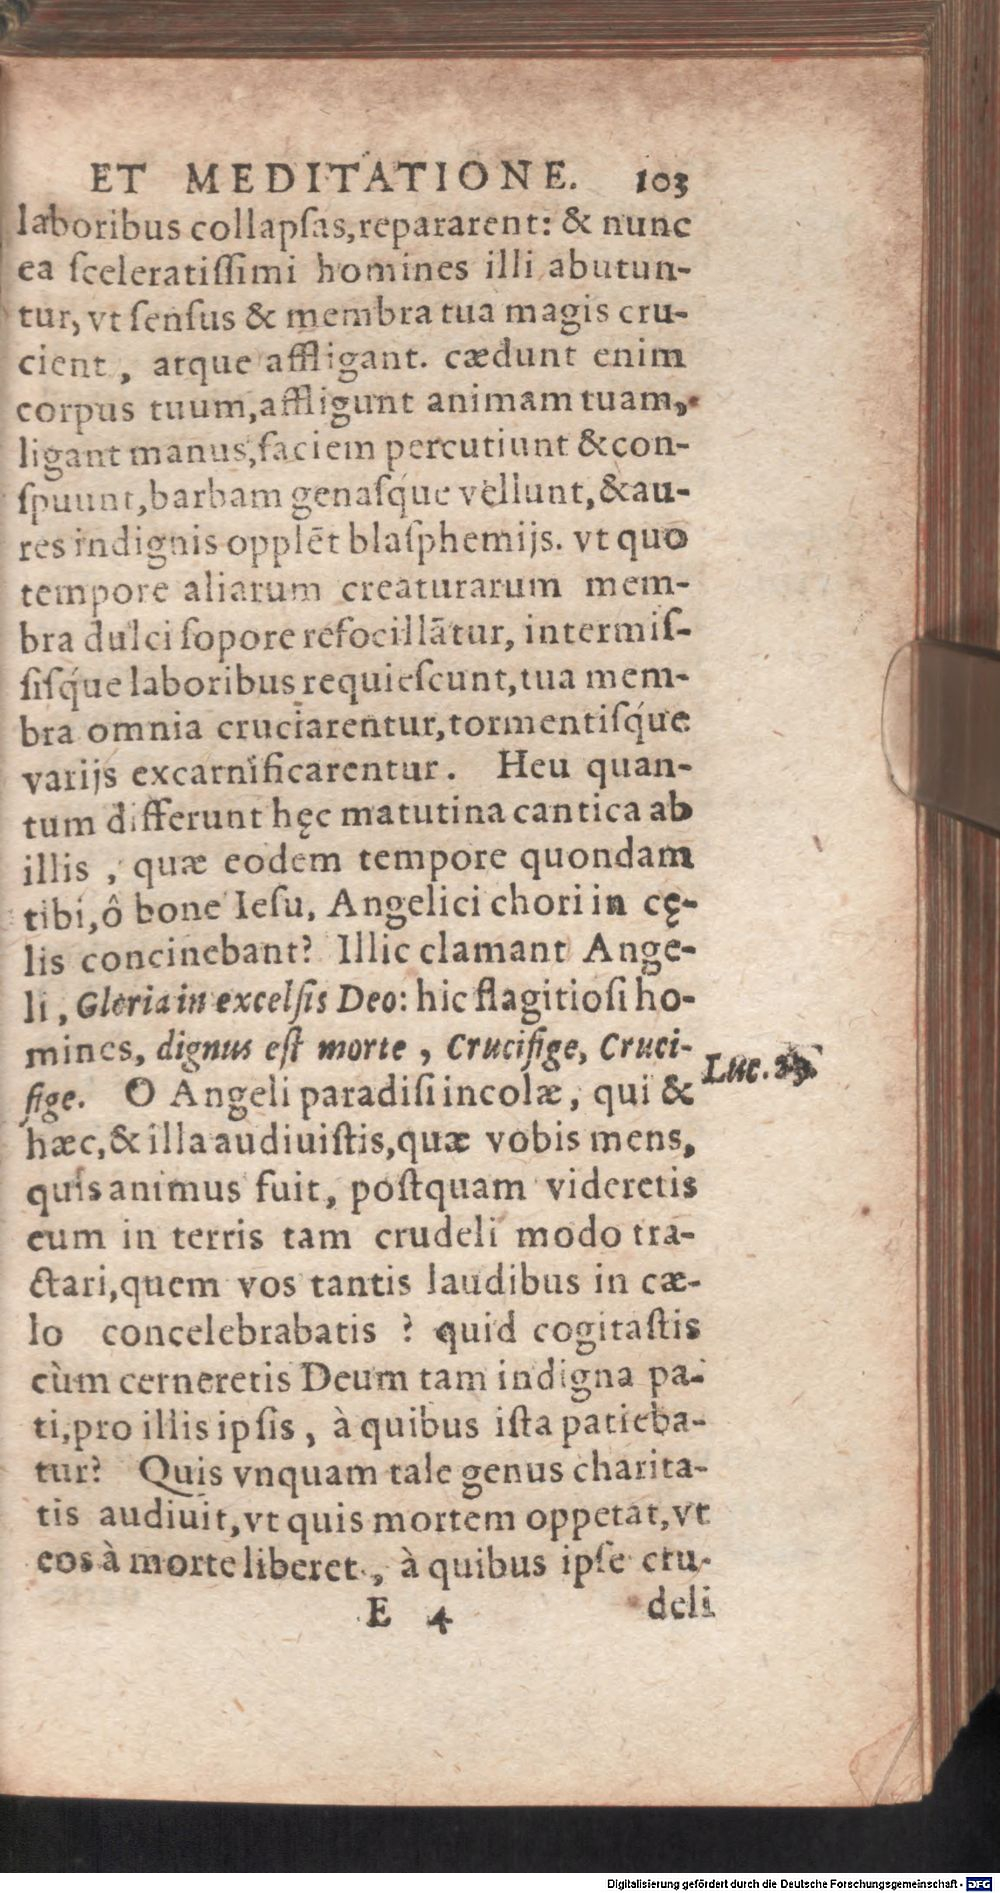 ET MEDITATIONE. 103
laboribus collapſas,repararent: & nunc
ea ſceleratiſſimi homines illi abutun-
tur, vt ſenſus & membra tua magis cru-
cient, atque affligant. cædunt enim
corpus tuum,affligunt animam tuam,
ligant manus, faciem percutiunt & con-
ſpuunt,barbam genaſq́ue vellunt, & au-
res indignis opplēt blaſphemijs. vt quo
tempore aliarum creaturarum mem-
bra dulci ſopore refocillātur, intermiſ-
ſiſq́ue laboribus requieſcunt, tua mem-
bra omnia cruciarentur, tormentiſq́ue
varijs excarnificarentur. Heu quan-
tum differunt hęc matutina cantica ab
illis, quæ eodem tempore quondam
tibi, ô bone Ieſu, Angelici chori in cę-
lis concinebant? Illic clamant Ange-
li, Gloria in excelſis Deo: hic flagitioſi ho-
mines, dignus eſt morte, Crucifige, Cruci-
fige. O Angeli paradiſi incolæ, qui &
Luc.
hæc, & illa audiuiſtis, quæ vobis mens,
quis animus fuit, poſtquam videretis
eum in terris tam crudeli modo tra-
ctari, quem vos tantis laudibus in cæ-
lo concelebrabatis ? quid cogitaſtis
cùm cerneretis Deum tam indigna pa-
ti, pro illis ipſis, à quibus iſta patieba-
tur? Quis vnquam tale genus charita-
tis audiuit, vt quis mortem oppetat, vt
eos à morte liberet, à quibus ipſe cru-
E 4 deli
Digitalisierung gefördert durch die Deutsche Forschungsgemeinschaft - DFG